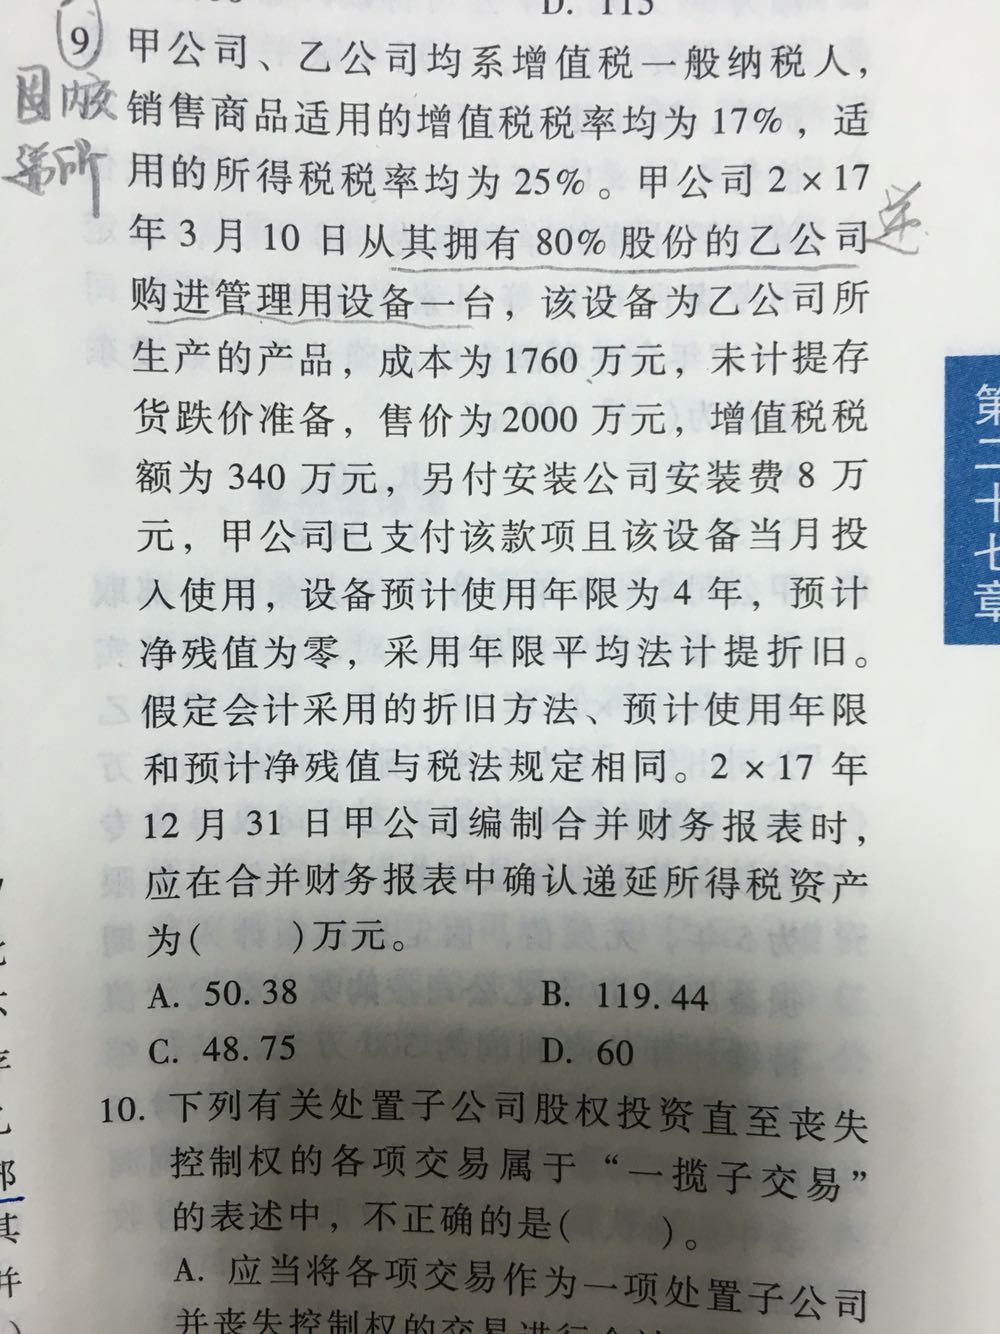 D. 115
9 甲公司、乙公司均系增值税一般纳税人，
固
销售商品适用的增值税税率均为 17%，适
递所
用的所得税税率均为 25%。甲公司 2×17
年 3 月 10 日从其拥有 80% 股份的乙公司
逆
购进管理用设备一台，该设备为乙公司所
生产的产品，成本为 1760 万元，未计提存
货跌价准备，售价为 2000 万元，增值税税
额为 340 万元，另付安装公司安装费 8 万
元，甲公司已支付该款项且该设备当月投
入使用，设备预计使用年限为 4 年，预计
净残值为零，采用年限平均法计提折旧。
假定会计采用的折旧方法、预计使用年限
和预计净残值与税法规定相同。2×17 年
12 月 31 日甲公司编制合并财务报表时，
应在合并财务报表中确认递延所得税资产
为(　　)万元。
A. 50.38　B. 119.44
C. 48.75　D. 60
10. 下列有关处置子公司股权投资直至丧失
控制权的各项交易属于“一揽子交易”
的表述中，不正确的是(　　)。
A. 应当将各项交易作为一项处置子公司
并丧失控制权的交易进行会计
第二十七章
其
并